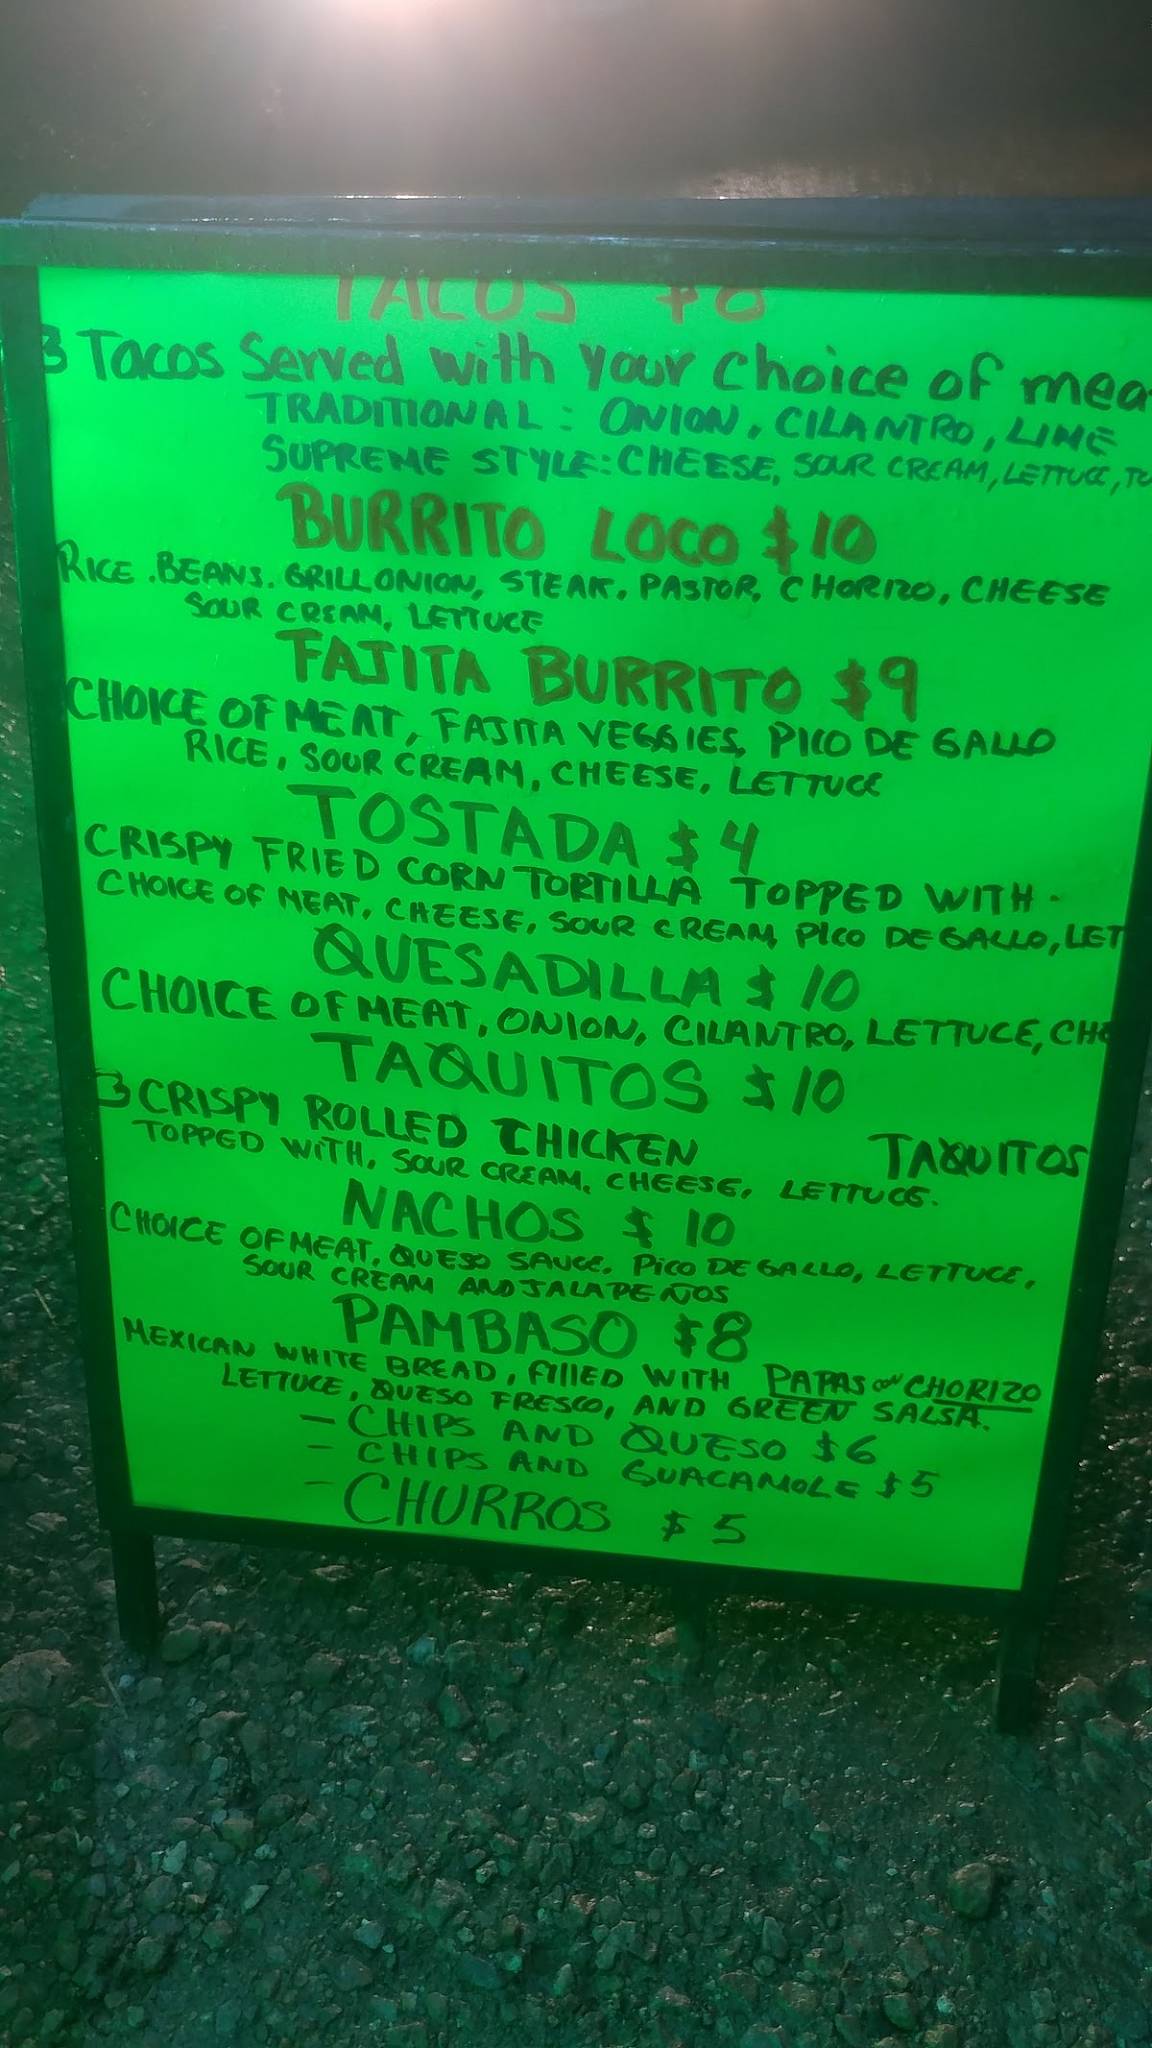 TACOS
3 Tacos Served with your choice of
TRADITIONAL: ONION, CILANTRO, LIME
SUPREME STYLE: CHEESE, SOUR CREAM, LETTUCE,
BURRITO LOCO $10
RICE. BEANS. GRILL ONION, STEAK. PASTOR, CHORIZO, CHEESE
SOUR CREAM, LETTUCE
FAJITA BURRITO $9
CHOICE OF MEAT, FAJITA VEGGIES, PICO DE GALLO
RICE, SOUR CREAM, CHEESE, LETTUCE
TOSTADA $4
CRISPY FRIED CORN TORTILLA TOPPED WITH.
CHOICE OF MEAT, CHEESE, SOUR CREAM, PICO DE GALLO, LET
QUESADILLA $10
CHOICE OF MEAT, ONION, CILANTRO, LETTUCE,
TAQUITOS $10
3 CRISPY ROLLED CHICKEN TAQUITOS
TOPPED WITH, SOUR CREAM, CHEESE, LETTUCE.
NACHOS $10
CHOICE OF MEAT, QUESO SAUCE, PICO DE GALLO, LETTUCE,
SOUR CREAM AND JALAPEÑOS
PAMBASO $8
MEXICAN WHITE BREAD, FILLED WITH PAPAS CON CHORIZO
LETTUCE, QUESO FRESCO, AND GREEN SALSA.
- CHIPS AND QUESO $6
- CHIPS AND GUACAMOLE $5
- CHURROS $5